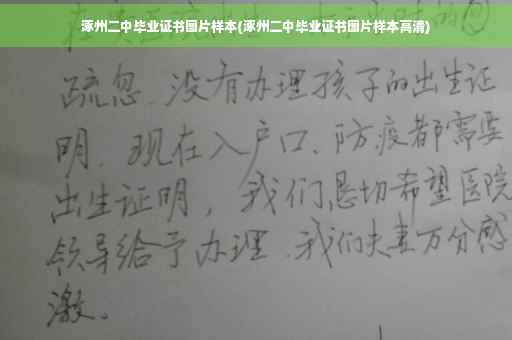 涿州二中毕业证书图片样本(涿州二中毕业证书图片样本高清)
疏忽、没有办理孩子的出生证
明、现在入户口、防疫都需要
出生证明，我们恳切希望医院
领导给予办理、我们夫妻万分感
激。